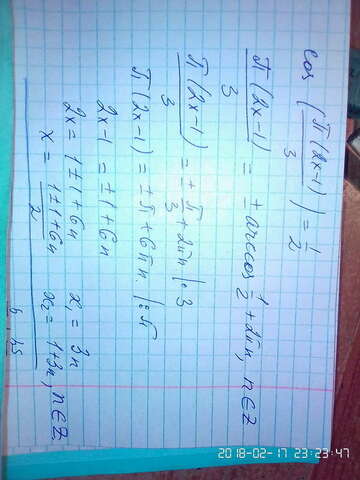 cos (π(2x-1)/3) = 1/2
π(2x-1)/3 = ± arccos 1/2 + 2πn, n∈Z
π(2x-1)/3 = ± π/3 + 2πn |·3
π(2x-1) = ±π + 6πn. |:π
2x-1 = ±1 + 6n
2x = 1±1+6n
x = 1±1+6n/2 x₁ = 3n x₂ = 1+3n, n∈Z.
2018-02-17 23:23:47